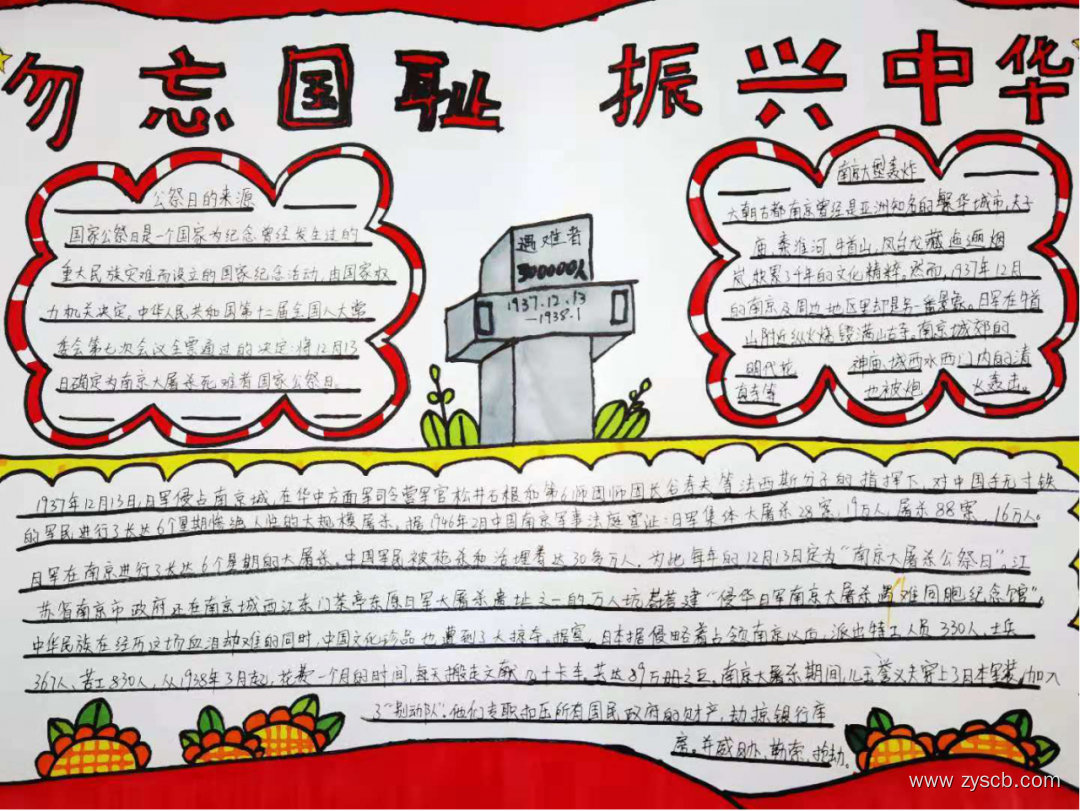 勿忘国耻 振兴中华
公祭日的来源
国家公祭日是一个国家为纪念曾经发生过的
重大民族灾难而设立的国家纪念活动,由国家权
力机关决定。中华人民共和国第十二届全国人大常
委会第七次会议全票通过的决定:将12月13
日确定为南京大屠杀死难者国家公祭日。
遇难者
300000人
1937.12.13
—1938.1
南京大型轰炸
六朝古都南京曾经是亚洲知名的繁华城市,夫子
庙、秦淮河、牛首山、凤台龙藏逾迤烟
岚,积累了千年的文化精粹。然而,1937年12月
的南京及周边地区里却是另一番景象。日军在牛首
山附近纵火烧毁满山古寺。南京城郊的
明代 神庙、城西水西门内的清
真寺等 也被炮 火轰击。
1937年12月13日,日军侵占南京城,在华中方面军司令营军官松井石根和第6师团师团长谷寿夫等法西斯分子的指挥下,对中国手无寸铁
的军民进行了长达6个星期惨绝人寰的大规模屠杀。据1946年2月中国南京军事法庭查证:日军集体大屠杀28案,19万人,屠杀88案,16万人。
日军在南京进行了长达6个星期的大屠杀。中国军民被枪杀和活埋者达30多万人。为此每年的12月13日定为“南京大屠杀公祭日”。江
苏省南京市政府还在南京城西江东门茶亭东原日军大屠杀遗址之一的万人坑 着建“侵华日军南京大屠杀遇难同胞纪念馆”。
中华民族在经历这场血泪劫难的同时,中国文化珍品也遭到了大掠夺。据查,日本 侵略者占领南京以 ,派出特工人员330人、士兵
367人、苦工830人,从1938年3月起,花费一个月的时间,每天搬走文献 十几卡车,共达89万册之 。南京大屠杀期间, 王誉义夫穿上了日本军装,加入
了“别动队”。他们专职扣压所有国民政府的财产,劫掠银行库
房。并威胁、勒索、抢劫。
www.zyscb.com